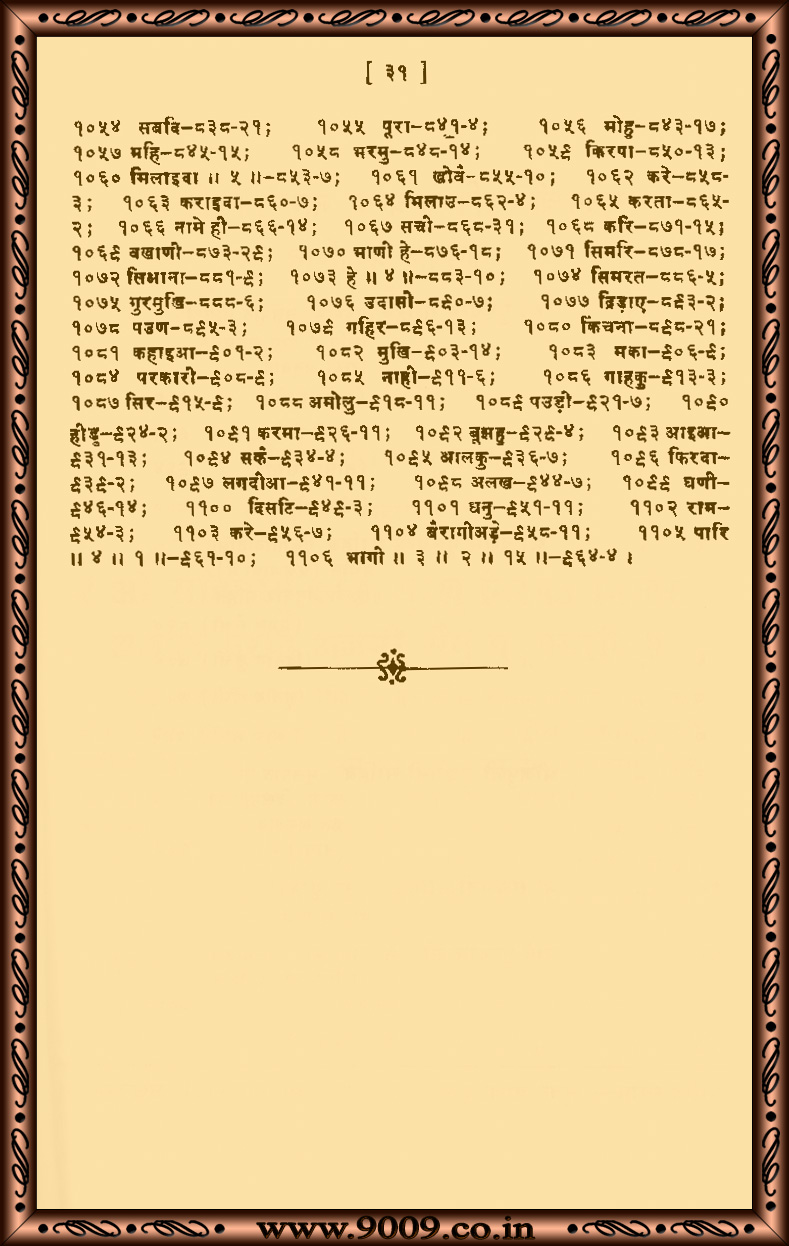 [ ३१ ]
१०५४ सबदि–८३८-२१; १०५५ पूरा–८४१-४; १०५६ मोहु–८४३-१७;
१०५७ महि–८४५-१५; १०५८ भरमु–८४८-१४; १०५९ किरपा–८५०-१३;
१०६० मिलाइवा ॥ ५ ॥–८५३-७; १०६१ खोवै–८५५-१०; १०६२ करे–८५८-
३; १०६३ कराइवा–८६०-७; १०६४ मिलाउ–८६२-४; १०६५ करता–८६५-
२; १०६६ नामे ही–८६६-१४; १०६७ सची–८६८-३१; १०६८ करि–८७१-१५;
१०६९ वखाणी–८७३-२९; १०७० भाणी हे–८७६-१८; १०७१ सिमरि–८७८-१७;
१०७२ सिभाना–८८१-९; १०७३ हे ॥ ४ ॥–८८३-१०; १०७४ सिमरत–८८६-५;
१०७५ गुरमुखि–८८८-६; १०७६ उदासी–८९०-७; १०७७ द्रिड़ाए–८९३-२;
१०७८ पउण–८९५-३; १०७९ गहिर–८९६-१३; १०८० किंचना–८९८-२१;
१०८१ कहाइआ–९०१-२; १०८२ मुखि–९०३-१४; १०८३ मका–९०६-९;
१०८४ परकारी–९०८-९; १०८५ नाही–९११-६; १०८६ गाहकु–९१३-३;
१०८७ सिर–९१५-९; १०८८ अमोलु–९१८-११; १०८९ पउड़ी–९२१-७; १०९०
हीडु–९२४-२; १०९१ करमा–९२६-११; १०९२ बूझहु–९२९-४; १०९३ आइआ–
९३१-१३; १०९४ सकै–९३४-४; १०९५ आलकु–९३६-७; १०९६ फिरदा–
९३९-२; १०९७ लगदीआ–९४१-११; १०९८ अलख–९४४-७; १०९९ घणी–
९४६-१४; ११०० दिसटि–९४९-३; ११०१ धनु–९५१-११; ११०२ राम–
९५४-३; ११०३ करे–९५६-७; ११०४ बैरागीअड़े–९५८-११; ११०५ पारि
॥ ४ ॥ १ ॥–९६१-१०; ११०६ भागी ॥ ३ ॥ २ ॥ १५ ॥–९६४-४ ।
www.9009.co.in